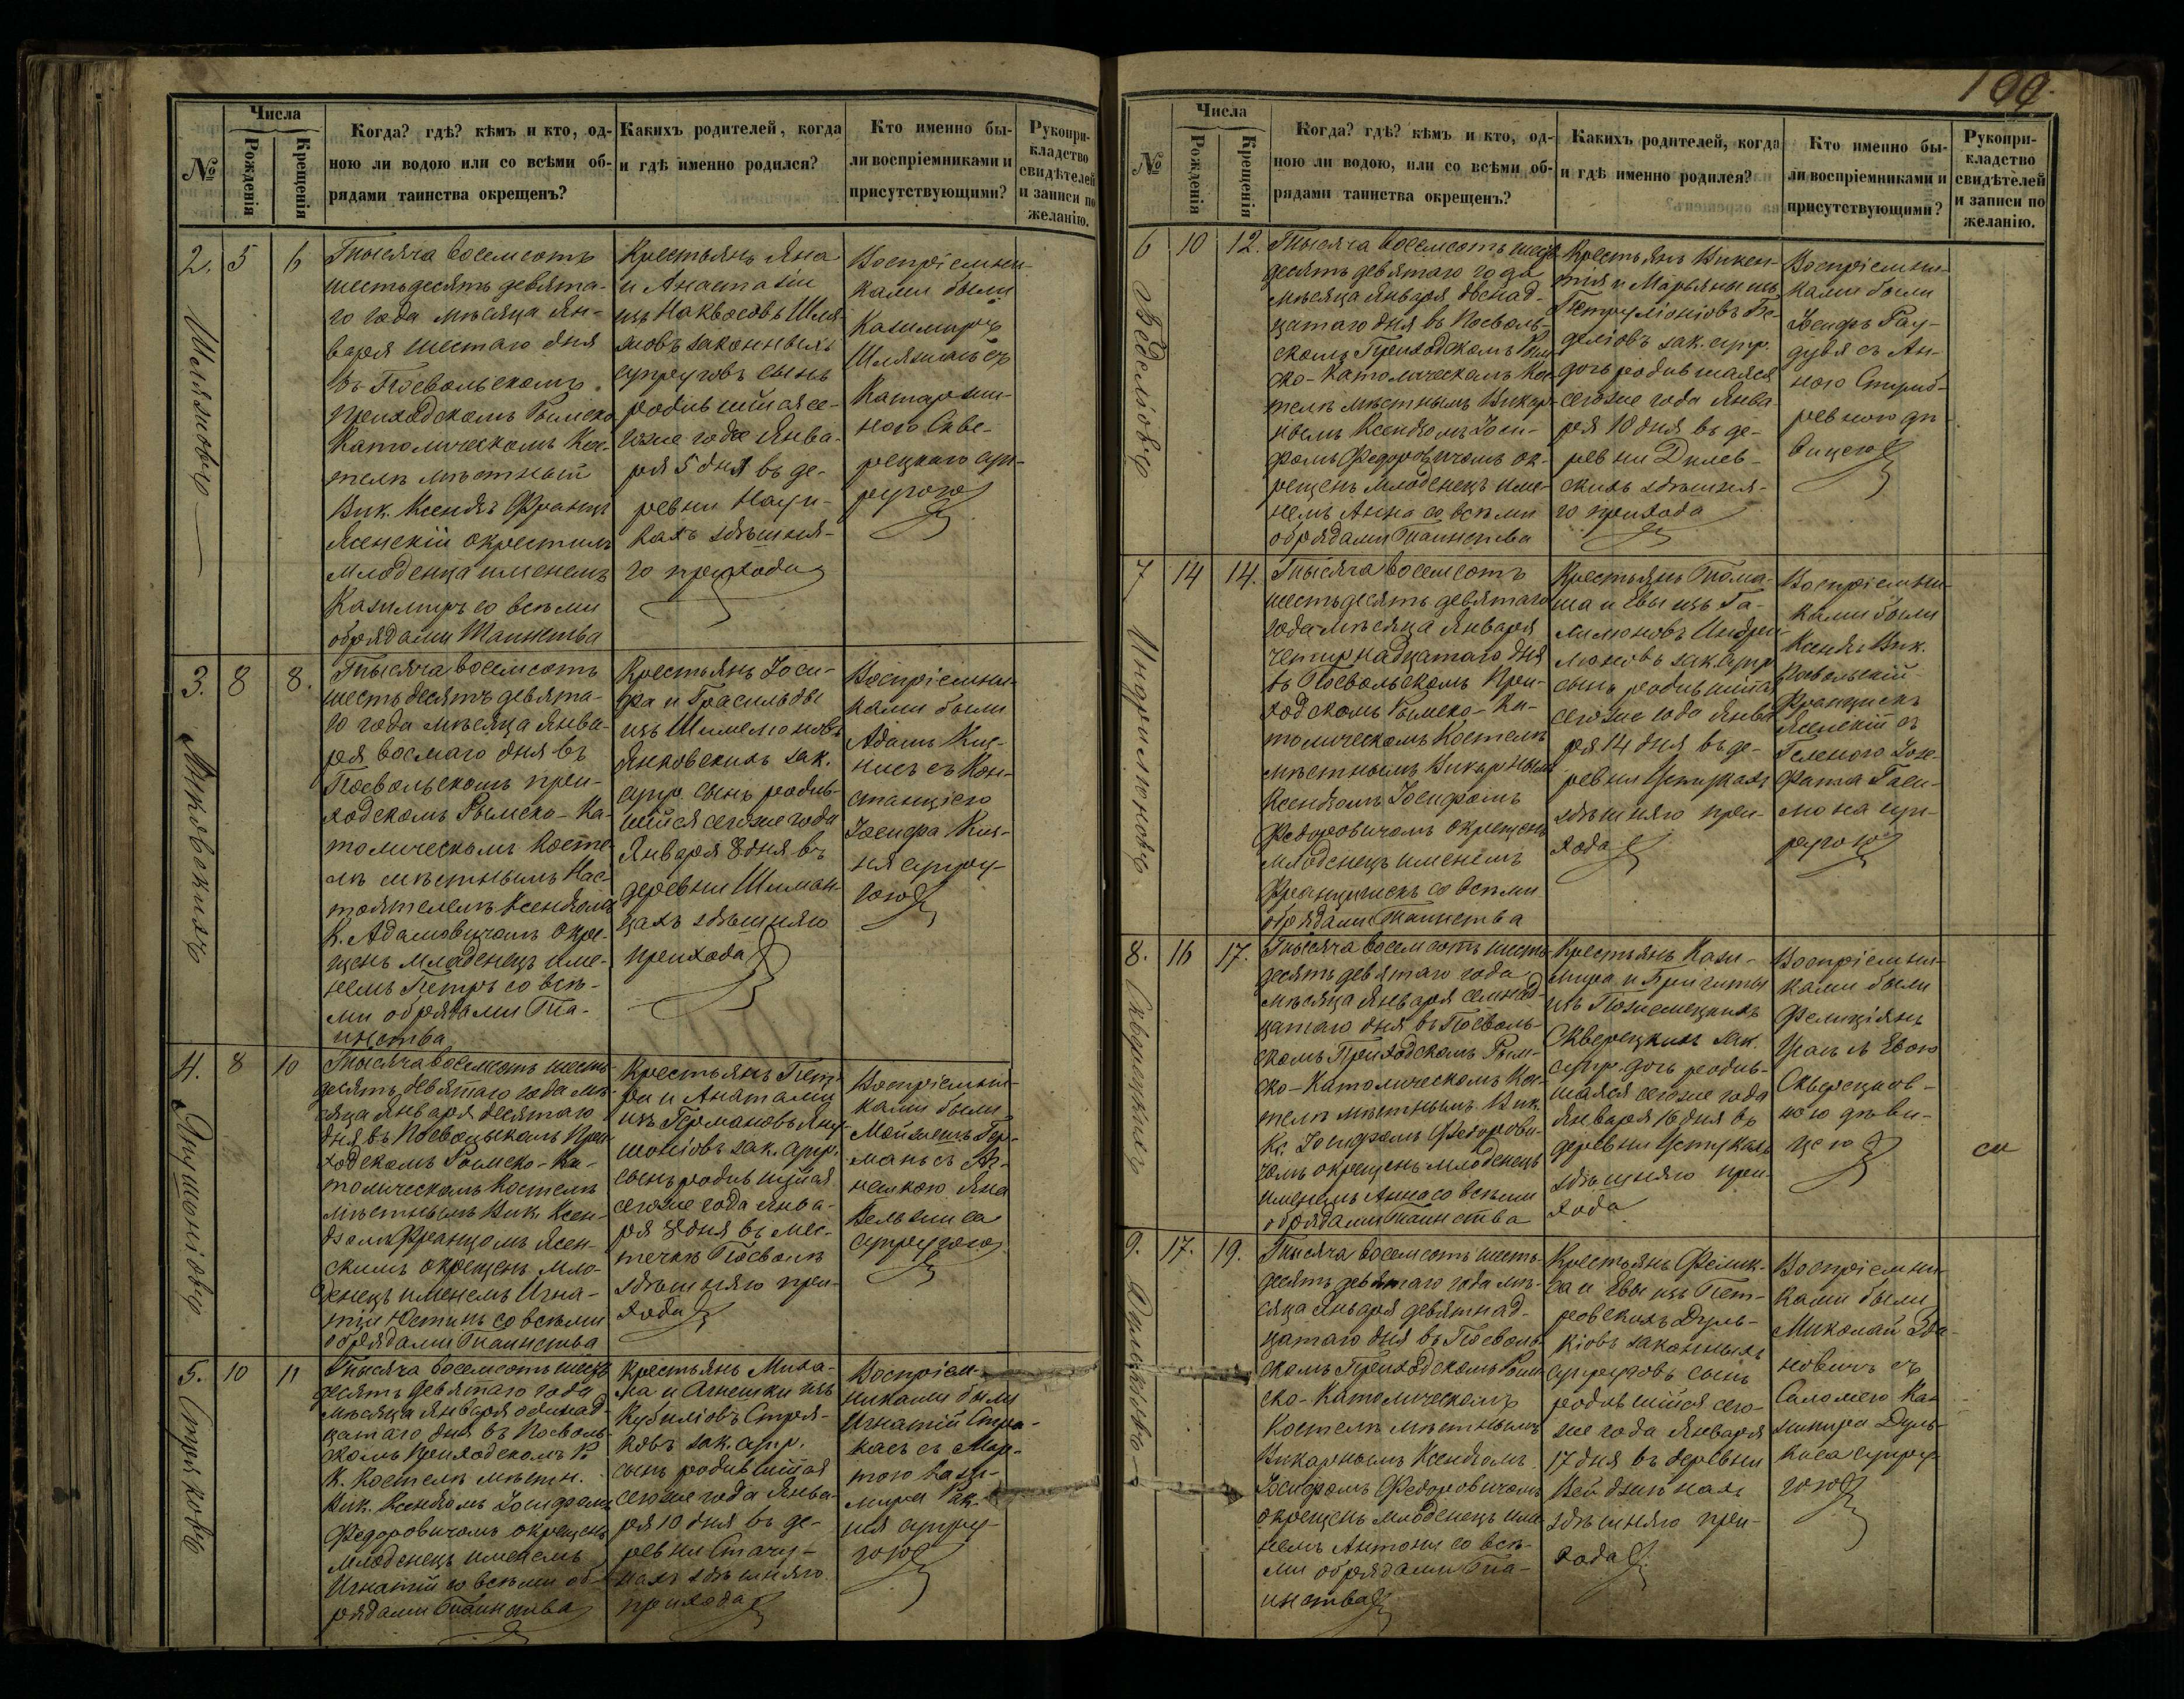 199.
№
Числа
Рожденія
Крещенія
Когда? гдѣ? кѣмъ и кто, од-
ною ли водою или со всѣми об-
рядами таинства окрещенъ?
Какихъ родителей, когда
и гдѣ именно родился?
Кто именно бы-
ли воспріемниками и
присутствующими?
Рукопри-
кладство
свидѣтелей
и записи по
желанію.
2.
Шляжовъ
5
6
Тысяча восемсотъ
шестьдесятъ девята-
го года мѣсяца Ян-
варя шестаго дня
въ Посвольскомъ
приходскомъ Римско
Католическомъ Кос-
телѣ мѣстный
Вик. Ксендзъ Францъ
Ясенскій окрестилъ
младенца именемъ
Казимиръ со всѣми
обрядами Таинства
Крестьянъ Яна
и Анастазіи
изъ Наквосовъ Шля-
жовъ законныхъ
супруговъ сынъ
родившійся се-
гоже года Янва-
ря 5 дня въ де-
ревни Наци-
кахъ здѣшня-
го прихода
Воспріемни-
ками были
Казимиръ
Шляжасъ съ
Катаржи-
ною Скве-
рецкаго суп-
ругою
3.
Янковскихъ
8
8.
Тысяча восемсотъ
шестьдесятъ девята-
го года мѣсяца Янва-
ря восмаго дня въ
Посвольскомъ при-
ходскомъ Римско-Ка-
толическомъ Косте-
лѣ мѣстнымъ Нас-
тоятелемъ Ксендзомъ
К. Адамовичомъ окре-
щенъ младенецъ име-
немъ Петръ со всѣ-
ми обрядами Та-
инства
Крестьянъ Іоси-
фа и Грасильды
изъ Шимелюновъ
Янковскихъ зак.
супр. сынъ родив-
шійся сегоже года
Января 8 дня въ
деревни Шиман-
цахъ здѣшняго
прихода
Воспріемни-
ками были
Адамъ Кис-
нисъ съ Кон-
станціею
Іосифа Кис-
ня супру-
гою
4.
Янушоніовъ
8
10
Тысяча восемсотъ шесть-
десятъ девятаго года мѣ-
сяца Января десятаго
дня въ Посвольскомъ При-
ходскомъ Римско-Ка-
толическомъ Костелѣ
мѣстнымъ Вик. Ксен-
дзомъ Францомъ Ясен-
скимъ окрещенъ мла-
денецъ именемъ Игна-
тій Юстинъ со всѣми
обрядами Таинства
Крестьянъ Пет-
ра и Анаталии
изъ Германовъ Яну-
шоніовъ зак. супр.
сынъ родившійся
сегоже года Янва-
ря 8 дня въ мѣс-
течкѣ Посволѣ
здѣшняго при-
хода
Воспріемни-
ками были
Мойжешъ Гер-
манъ съ Аг-
нешкою Яна
Вельвиса
супругою
5.
Страковъ
10
11
Тысяча восемсотъ шесть
десятъ девятаго года
мѣсяца Января одинад-
цатаго дня въ Посволь-
скомъ приходскомъ Р.
К. Костелѣ мѣстн.
Вик. Ксендзомъ Іосифомъ
Федоровичомъ окрещенъ
младенецъ именемъ
Игнатій со всѣми об-
рядами Таинства
Крестьянъ Миха-
ла и Агнешки изъ
Кубиліовъ Стра-
ковъ зак. супр.
сынъ родившійся
сегоже года Янва-
ря 10 дня въ де-
ревни Стачу-
нахъ здѣшняго
прихода
Воспріем-
никами были
Игнатій Стра-
касъ съ Мар-
тою Кази-
мира Рак-
ня супру-
гою
№
Числа
Рожденія
Крещенія
Когда? гдѣ? кѣмъ и кто, од-
ною ли водою, или со всѣми об-
рядами таинства окрещенъ?
Какихъ родителей, когда
и гдѣ именно родился?
Кто именно бы-
ли воспріемниками и
присутствующими?
Рукопри-
кладство
свидѣтелей
и записи по
желанію.
6
Беделіовъ
10
12.
Тысяча восемсотъ шесть
десятъ девятаго года
мѣсяца Января двенад-
цатаго дня въ Посволь-
скомъ Приходскомъ Рим-
ско-Католическомъ Кос-
телѣ мѣстнымъ Викар-
нымъ Ксендзомъ Іоси-
фомъ Федоровичомъ ок-
рещенъ младенецъ име-
немъ Анна со всѣми
обрядами Таинства
Крестьянъ Викен-
тія и Марьяны изъ
Петруліоніовъ Бе-
деліовъ зак. супр.
дочь родившаяся
сегоже года Янва-
ря 10 дня въ де-
ревни Дилев-
скихъ здѣшня-
го прихода
Воспріемни-
ками были
Іосифъ Гау-
дзя съ Ан-
ною
ревною дѣ-
вицею
7.
Индрилюновъ
14
14.
Тысяча восемсотъ
шестьдесятъ девятаго
года мѣсяца Января
четирнадцатаго дня
въ Посвольскомъ При-
ходскомъ Римско-Ка-
толическомъ Костелѣ
мѣстнымъ Викарнымъ
Ксендзомъ Іосифомъ
Федоровичомъ окрещенъ
младенецъ именемъ
Францишекъ со всѣми
обрядами Таинства
Крестьянъ Тома-
ша и Евы изъ Га-
лимоновъ Индри-
люновъ зак. супр
сынъ родившійся
сегоже года Янва-
ря 14 дня въ де-
ревни Устукахъ
здѣшняго при-
хода
Воспріемни-
ками были
Ксендзъ Вик.
Посвольскій
Францискъ
Ясенскій съ
Геленою Іозе-
фата Гали-
мона суп-
ругою
8.
Скверецкихъ
16
17.
Тысяча восемсотъ шесть-
десятъ девятаго года
мѣсяца Января семнад-
цатаго дня въ Посволь-
скомъ Приходскомъ Рим-
ско-Католическомъ Кос-
телѣ мѣстнымъ Вик.
Кс. Іосифомъ Федорови-
чомъ окрещенъ младенецъ
именемъ Анна со всѣми
обрядами Таинства
Крестьянъ Кази-
мира и Бригиты
изъ Познемецкихъ
Скверецкихъ зак.
супр. дочь родив-
шаяся сегоже года
Января 16 дня въ
деревни Устукахъ
здѣшняго при-
хода
Воспріемни-
ками были
Фелиціянъ
съ Евою
Скверецков-
ною дѣви-
цею
9.
Дулькіовъ
17.
19.
Тысяча восемсотъ шесть-
десятъ девятаго года мѣ-
сяца Января девятнад-
цатаго дня въ Посволь-
скомъ Приходскомъ Рим-
ско-Католическомъ
Костелѣ мѣстнымъ
Викарнымъ Ксендзомъ
Іосифомъ Федоровичомъ
окрещенъ младенецъ име-
немъ Антони со всѣ-
ми обрядами Та-
инства
Крестьянъ Фелик-
са и Евы изъ Пет-
ровскихъ Дуль-
кіовъ законныхъ
супруговъ сынъ
родившійся сего-
же года Января
17 дня въ деревни
здѣшняго при-
хода
Воспріемни-
ками были
Миколай Зда-
новичъ съ
Саломею Ка-
зимира Дуль-
киса супру-
гою